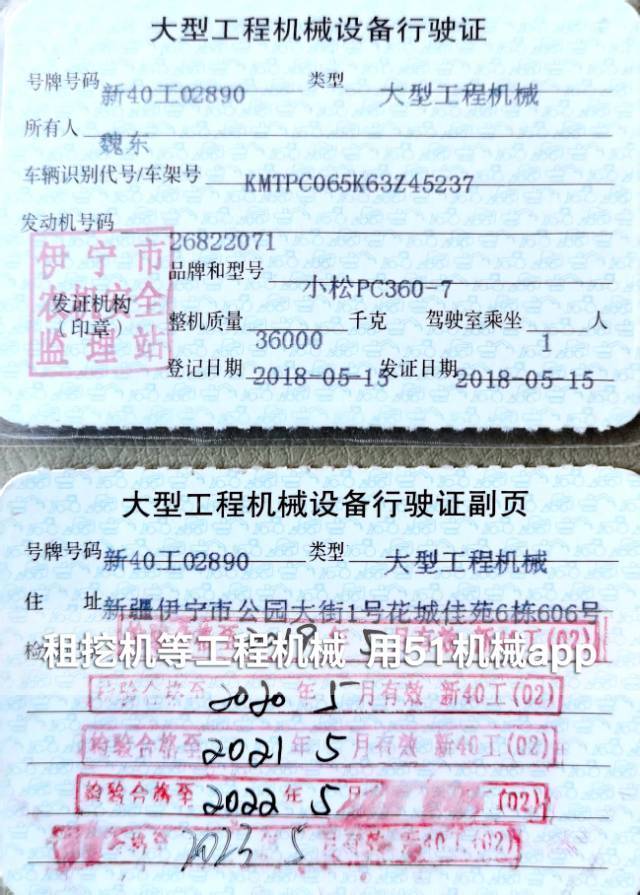 大型工程机械设备行驶证
号牌号码 新40工02890 类型 大型工程机械
所有人 魏东
车辆识别代号/车架号 KMTPC065K63Z45237
发动机号码 26822071
伊宁市
农机安全
监理站
发证机构
(印章)
品牌和型号 小松PC360-7
整机质量 36000 千克 驾驶室乘坐 1 人
登记日期 2018-05-15 发证日期 2018-05-15
大型工程机械设备行驶证副页
号牌号码 新40工02890 类型 大型工程机械
住 址 新疆伊宁市公园大街1号花城佳苑6栋606号
检 5 工(02)
租挖机等工程机械 用51机械app
检验合格至 2020 年 5 月有效 新40工(02)
检验合格至 2021 年 5 月有效 新40工(02)
检验合格至 2022 年 5 月 (02)
合格至 2023 年 5 月有效 新40工(02)